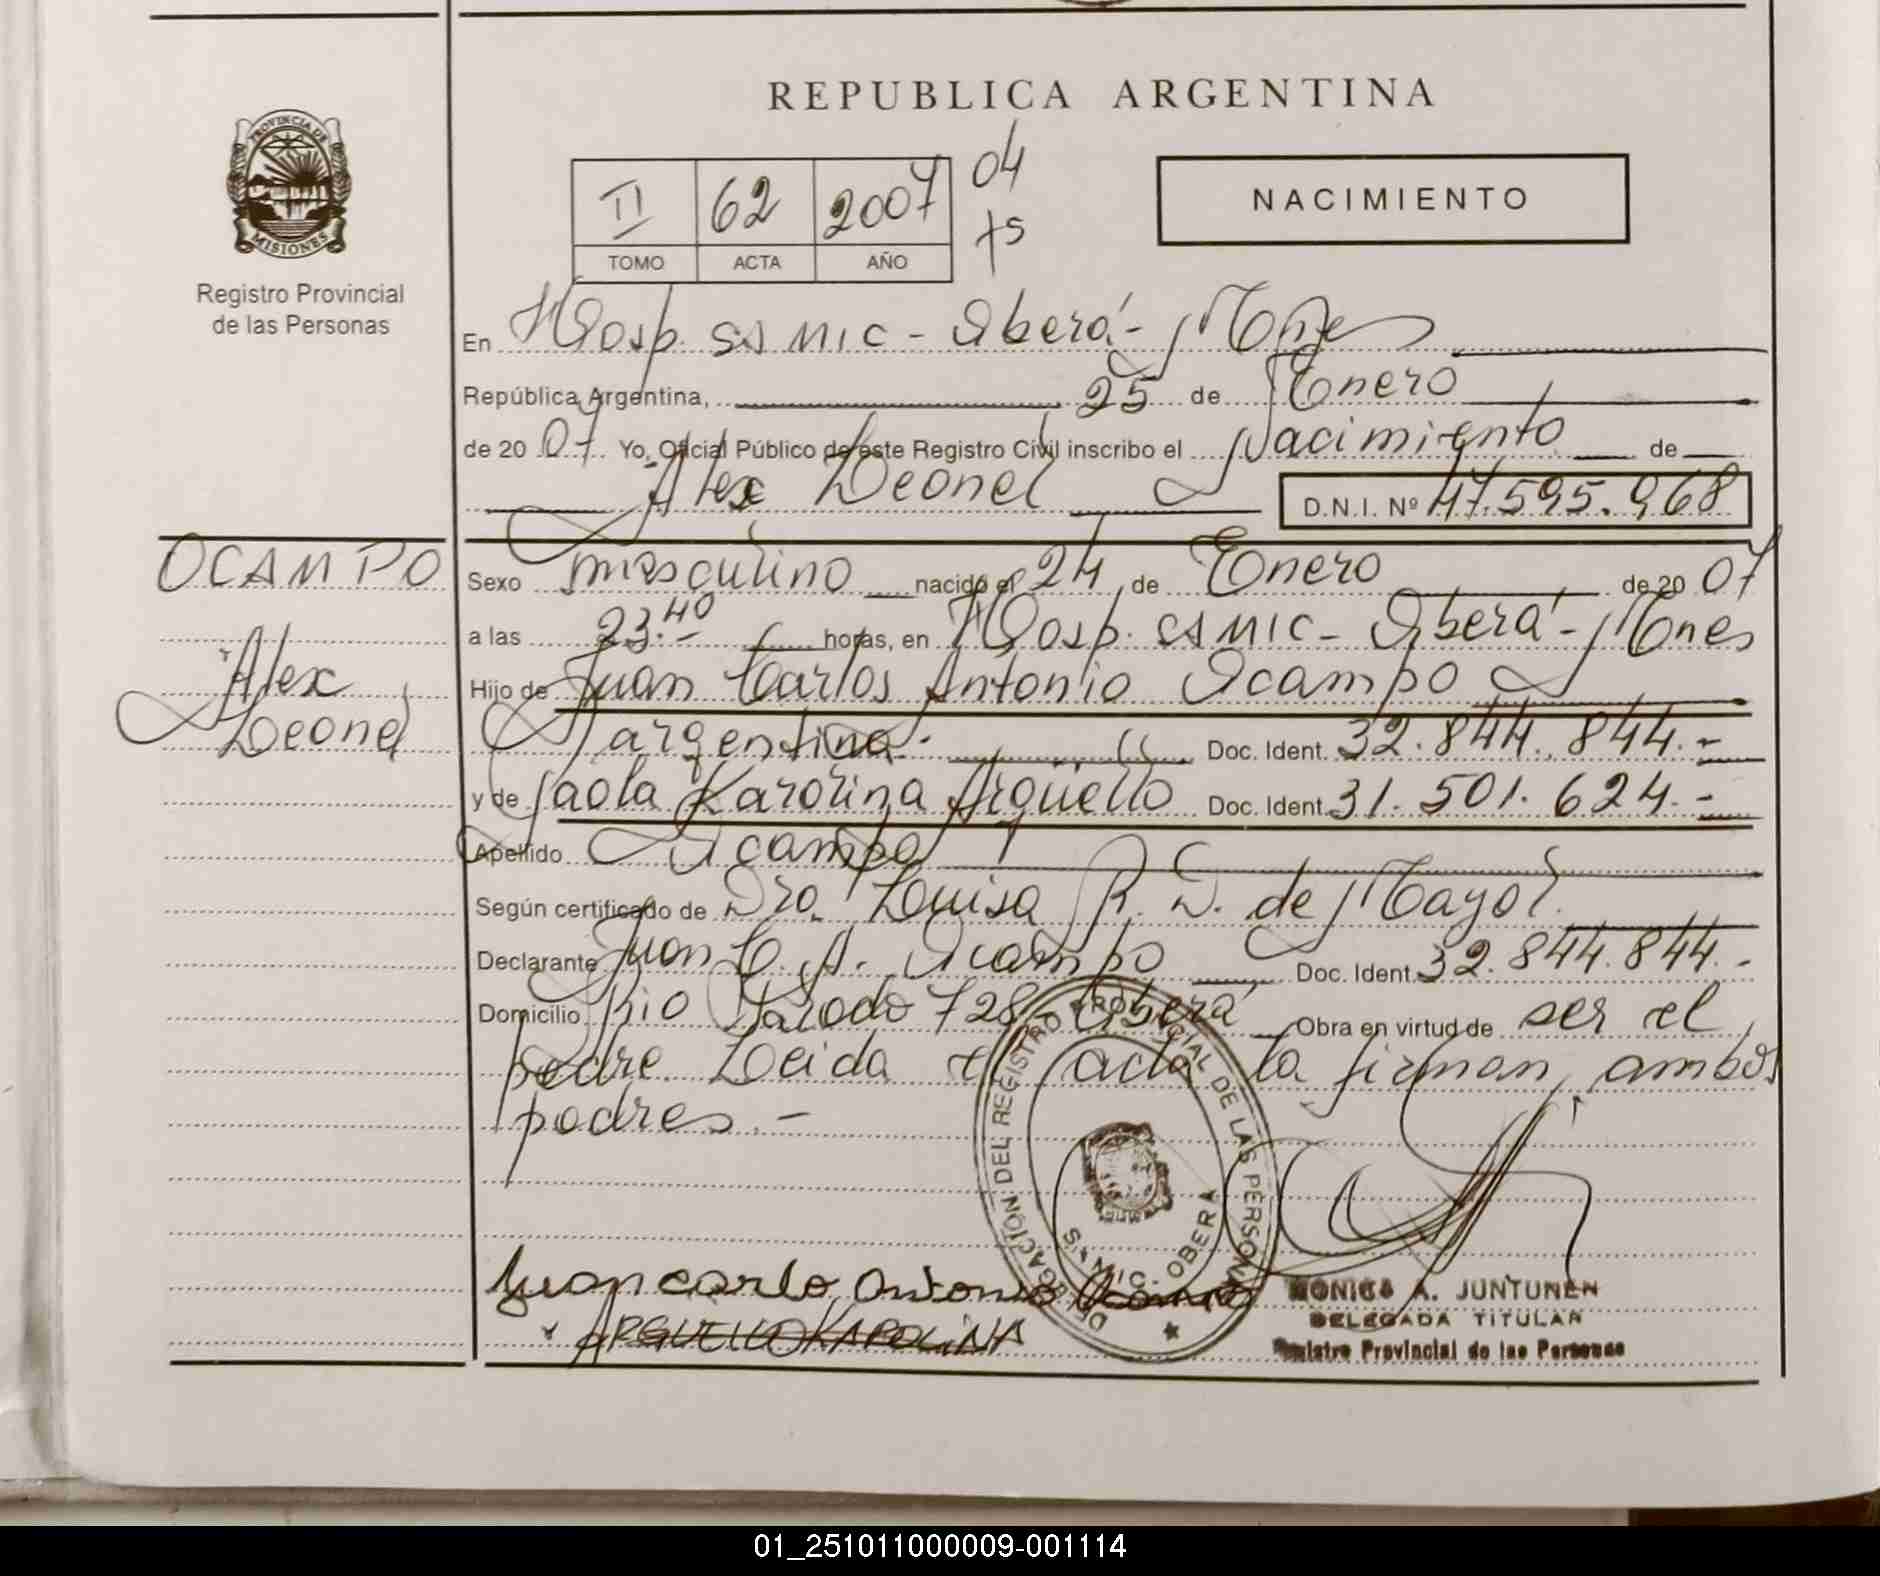 REPUBLICA ARGENTINA
PROVINCIA DE
MISIONES
Registro Provincial
de las Personas
II 62 2007 04
TOMO ACTA AÑO
NACIMIENTO
En Hosp. SAMIC - Oberá - Mnes
República Argentina, 25 de Enero
de 20 07 Yo, Oficial Público de este Registro Civil inscribo el Nacimiento de
Alex Leonel D.N.I. Nº 47.595.968
OCAMPO
Alex
Leonel
Sexo masculino nacido el 24 de Enero de 20 07
a las 23.40 horas, en Hosp. SAMIC - Oberá - Mnes
Hijo de Juan Carlos Antonio Ocampo
argentina.- Doc. Ident. 32.844.844.-
y de Paola Karolina Argüello Doc. Ident. 31.501.624.-
Apellido Ocampo
Según certificado de Dra. Luisa R. D. de Mayol.
Declarante Juan C. A. Ocampo Doc. Ident. 32.844.844.-
Domicilio Rio Pardo 728 - Oberá Obra en virtud de ser el
padre. Leida el acta la firman, ambos
padres.-
DELEGACIÓN DEL REGISTRO PROVINCIAL DE LAS PERSONAS
SAMIC - OBERA
Juan carlo Antonio Ocampo
ARGUELLO KAROLINA
MONICA A. JUNTUNEN
DELEGADA TITULAR
Registro Provincial de las Personas
01_251011000009-001114